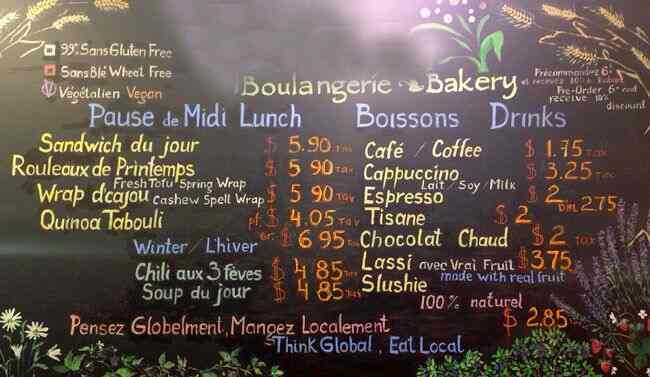 99% Sans Gluten Free
Sans Blé Wheat Free
Végétalien Vegan
Boulangerie Bakery
Précommandre 6+
et recevez 10% Rabais
Pre-Order 6+ and
receive 10%
discount
Pause de Midi Lunch
Sandwich du jour $ 5.90 Tax
Rouleaux de Printemps $ 5 90 Tax
Fresh Tofu Spring Wrap
Wrap d'cajou Cashew Spell Wrap $ 5 90 Tax
Quinoa Tabouli pt. $ 4.05 Tax
Gr. $ 6 95 Tax
Winter / L'hiver
Chili aux 3 fèves $ 4 85 Tax
Soup du jour $ 4 85 Tax
Boissons Drinks
Café / Coffee $ 1.75 Tax
Cappuccino $ 3.25 Tax
Lait / Soy / Milk
Espresso $ 2 DBL 2.75
Tisane $ 2
Chocolat Chaud $ 2 Tax
Lassi avec Vrai Fruit $ 3.75
Slushie made with real fruit
100% naturel
$ 2.85 Tax
Pensez Globelment, Mangez Localement
Think Global, Eat Local